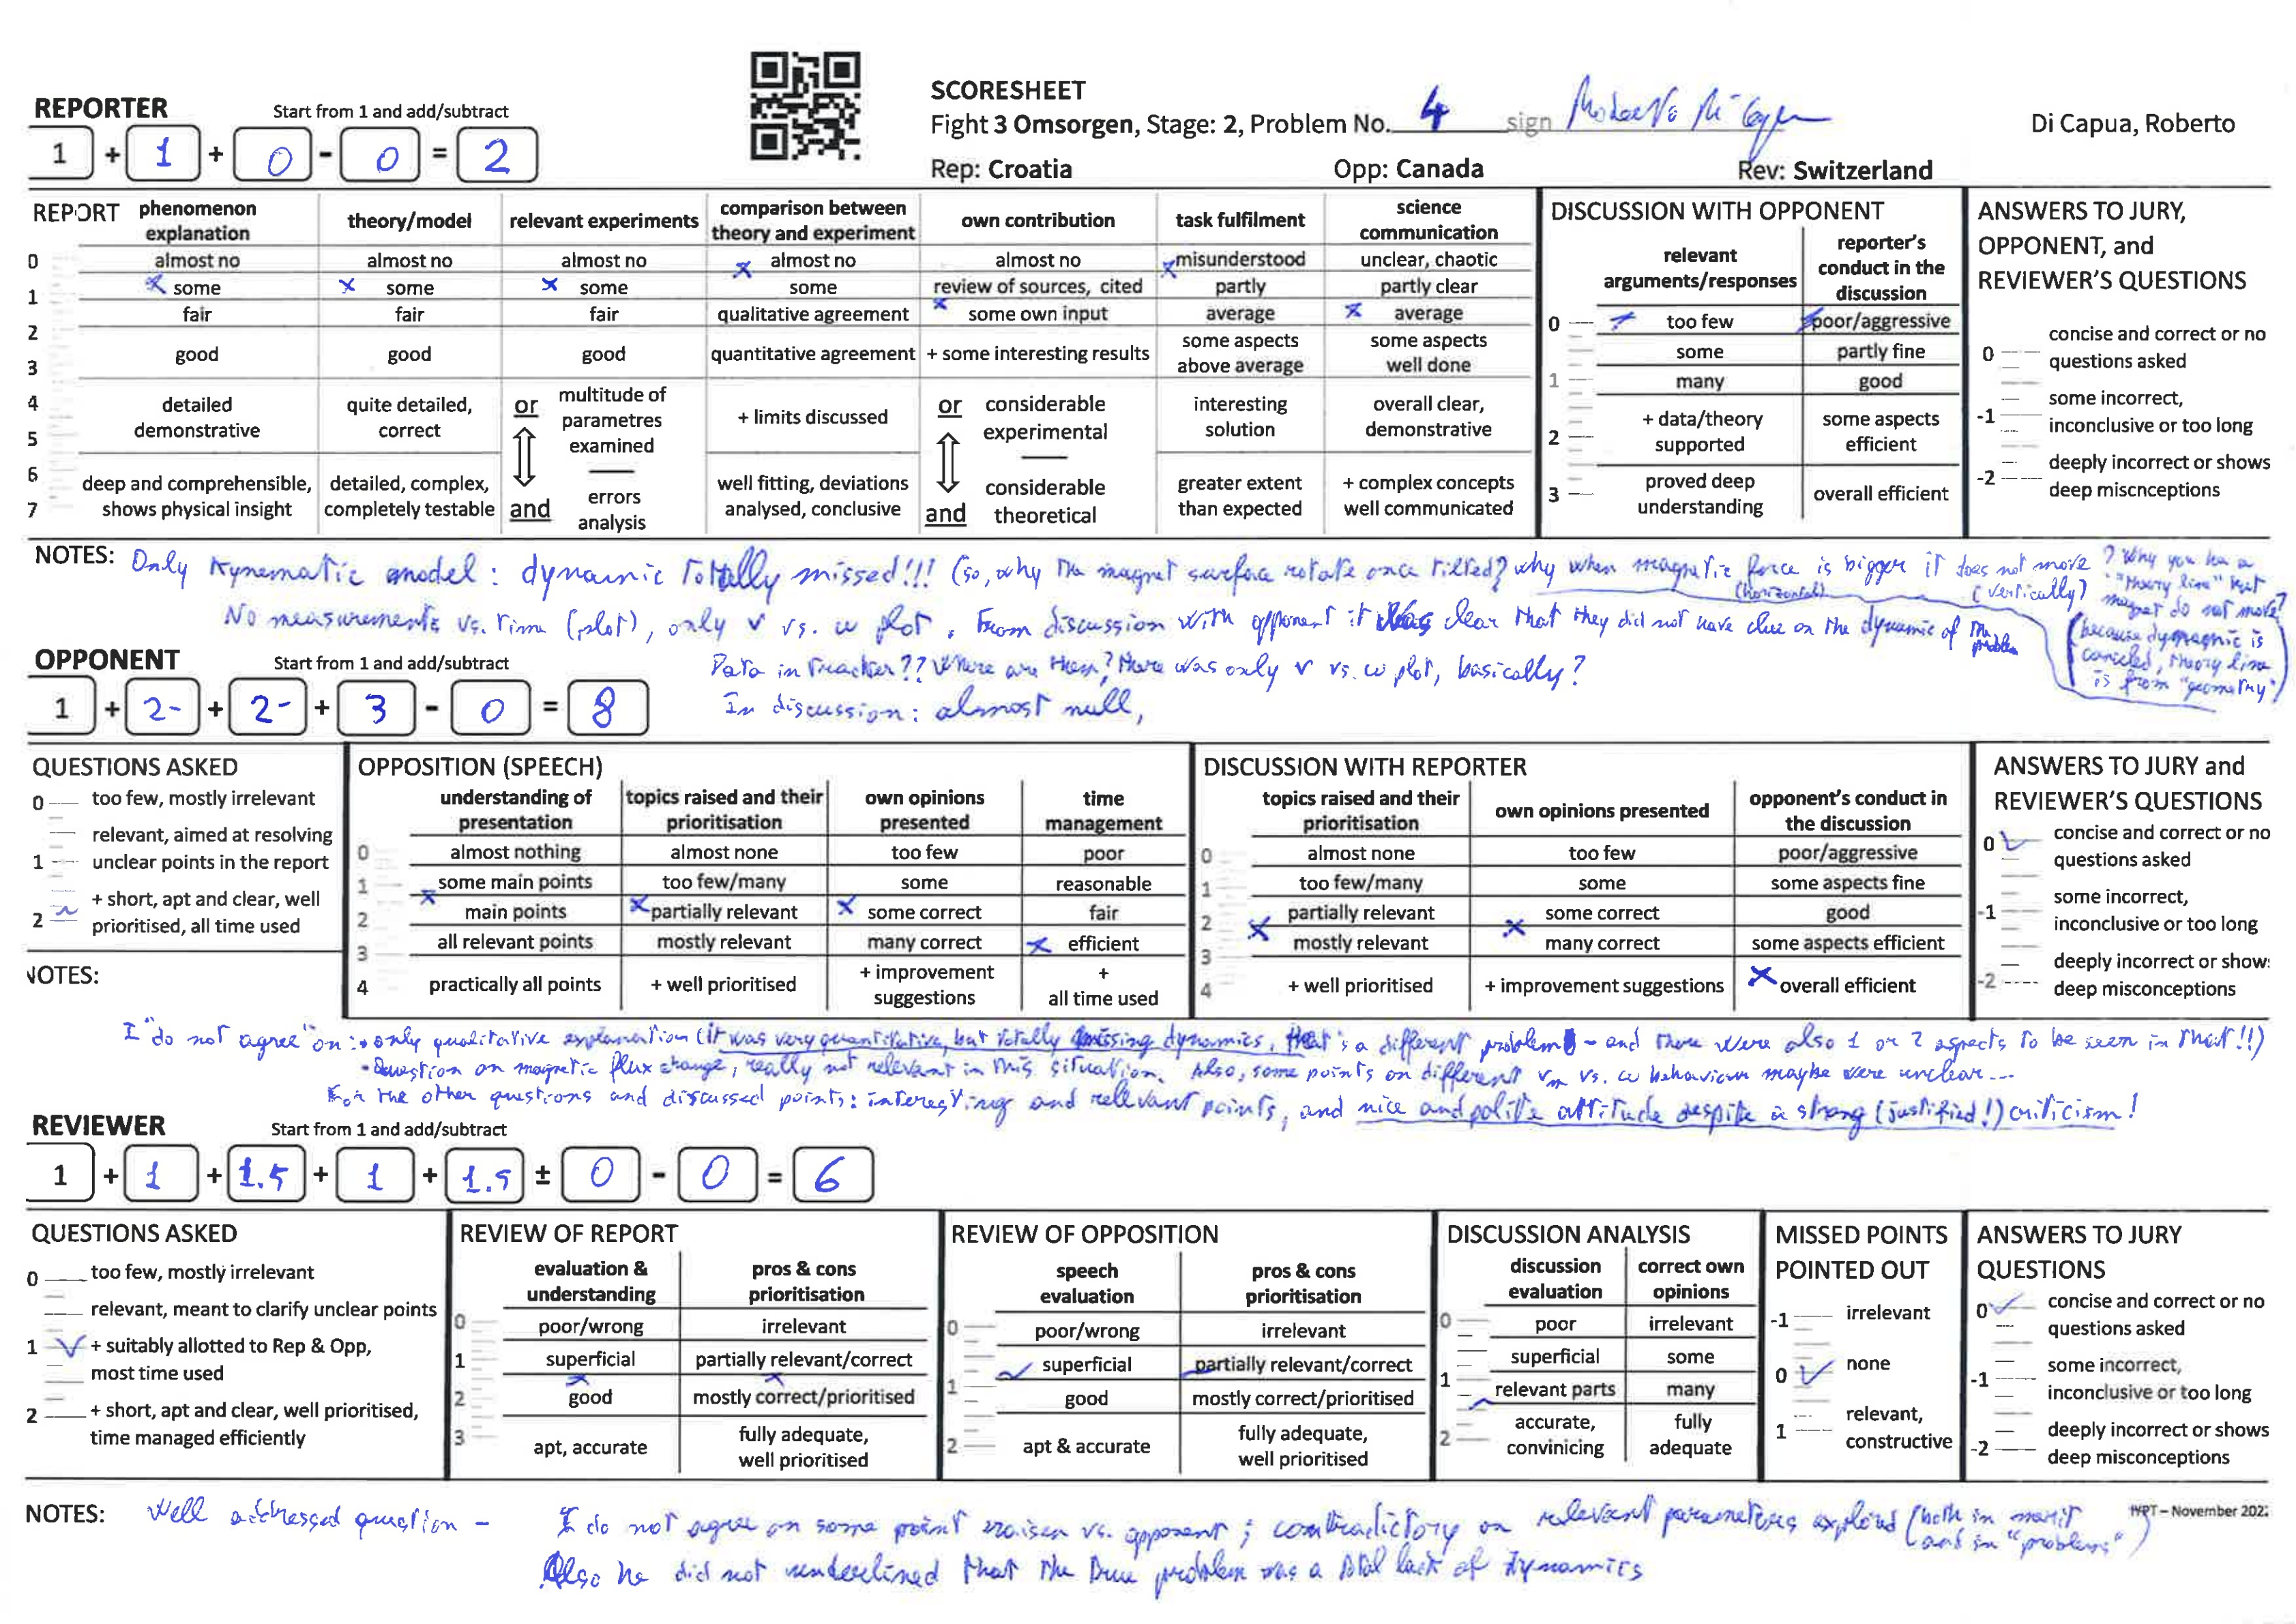 SCORESHEET
Fight 3 Omsorgen, Stage: 2, Problem No. 4 sign
Di Capua, Roberto
Rep: Croatia Opp: Canada Rev: Switzerland
REPORTER Start from 1 and add/subtract
1 + 1 + 0 - 0 = 2
REPORT
phenomenon explanation
theory/model
relevant experiments
comparison between theory and experiment
own contribution
task fulfilment
science communication
0 almost no almost no almost no almost no almost no misunderstood unclear, chaotic
1 some some some some review of sources, cited partly partly clear
fair fair fair qualitative agreement some own input average average
2
3 good good good quantitative agreement + some interesting results some aspects above average some aspects well done
4 detailed demonstrative quite detailed, correct or multitude of parametres examined + limits discussed or considerable experimental interesting solution overall clear, demonstrative
5
6 deep and comprehensible, shows physical insight detailed, complex, completely testable and errors analysis well fitting, deviations analysed, conclusive and considerable theoretical greater extent than expected + complex concepts well communicated
7
DISCUSSION WITH OPPONENT
relevant arguments/responses reporter's conduct in the discussion
0 too few poor/aggressive
some partly fine
1 many good
2 + data/theory supported some aspects efficient
3 proved deep understanding overall efficient
ANSWERS TO JURY, OPPONENT, and REVIEWER'S QUESTIONS
0 concise and correct or no questions asked
-1 some incorrect, inconclusive or too long
-2 deeply incorrect or shows deep miscnceptions
NOTES: Only Kynematic model: dynamic Totally missed!!! (so, why the magnet surface rotate once tilted? why when magnetic force is bigger it does not move ?
(horizontal) (vertically)
Why you have a "theory line" but magnet do not move?
(because dynamic is canceled, theory line is from "geometry")
No measurements vs. time (plot), only v vs. ω plot. From discussion with opponent it was clear that they did not have clue on the dynamic of the problem
Data in Tracker?? Where are them? There was only v vs. ω plot, basically?
In discussion: almost null,
OPPONENT Start from 1 and add/subtract
1 + 2- + 2- + 3 - 0 = 8
QUESTIONS ASKED
0 too few, mostly irrelevant
1 relevant, aimed at resolving unclear points in the report
2 + short, apt and clear, well prioritised, all time used
OPPOSITION (SPEECH)
understanding of presentation topics raised and their prioritisation own opinions presented time management
0 almost nothing almost none too few poor
1 some main points too few/many some reasonable
2 main points partially relevant some correct fair
3 all relevant points mostly relevant many correct efficient
4 practically all points + well prioritised + improvement suggestions + all time used
DISCUSSION WITH REPORTER
topics raised and their prioritisation own opinions presented opponent's conduct in the discussion
0 almost none too few poor/aggressive
1 too few/many some some aspects fine
2 partially relevant some correct good
3 mostly relevant many correct some aspects efficient
4 + well prioritised + improvement suggestions overall efficient
ANSWERS TO JURY and REVIEWER'S QUESTIONS
0 concise and correct or no questions asked
-1 some incorrect, inconclusive or too long
-2 deeply incorrect or show deep misconceptions
NOTES:
I "do not agree" on: • only qualitative explanation (it was very quantitative, but totally missing dynamics, that's a different problem - and there were also 1 or 2 aspects to be seen in that!!)
- Question on magnetic flux change, really not relevant in this situation. Also, some points on different vm vs. ω behaviour maybe were unclear...
For the other questions and discussed points: interesting and relevant points, and nice and polite attitude despite a strong (justified!) criticism!
REVIEWER Start from 1 and add/subtract
1 + 1 + 1.5 + 1 + 1.5 ± 0 - 0 = 6
QUESTIONS ASKED
0 too few, mostly irrelevant
relevant, meant to clarify unclear points
1 + suitably allotted to Rep & Opp, most time used
2 + short, apt and clear, well prioritised, time managed efficiently
REVIEW OF REPORT
evaluation & understanding pros & cons prioritisation
0 poor/wrong irrelevant
1 superficial partially relevant/correct
2 good mostly correct/prioritised
3 apt, accurate fully adequate, well prioritised
REVIEW OF OPPOSITION
speech evaluation pros & cons prioritisation
0 poor/wrong irrelevant
superficial partially relevant/correct
1 good mostly correct/prioritised
2 apt & accurate fully adequate, well prioritised
DISCUSSION ANALYSIS
discussion evaluation correct own opinions
0 poor irrelevant
superficial some
1 relevant parts many
2 accurate, convinicing fully adequate
MISSED POINTS POINTED OUT
-1 irrelevant
0 none
1 relevant, constructive
ANSWERS TO JURY QUESTIONS
0 concise and correct or no questions asked
-1 some incorrect, inconclusive or too long
-2 deeply incorrect or shows deep misconceptions
NOTES: Well addressed question - I do not agree on some point raised vs. opponent; contradictory on relevant parameters (both in merit and in "problems")
Also he did not underlined that the true problem was a total lack of dynamics
IYPT – November 202